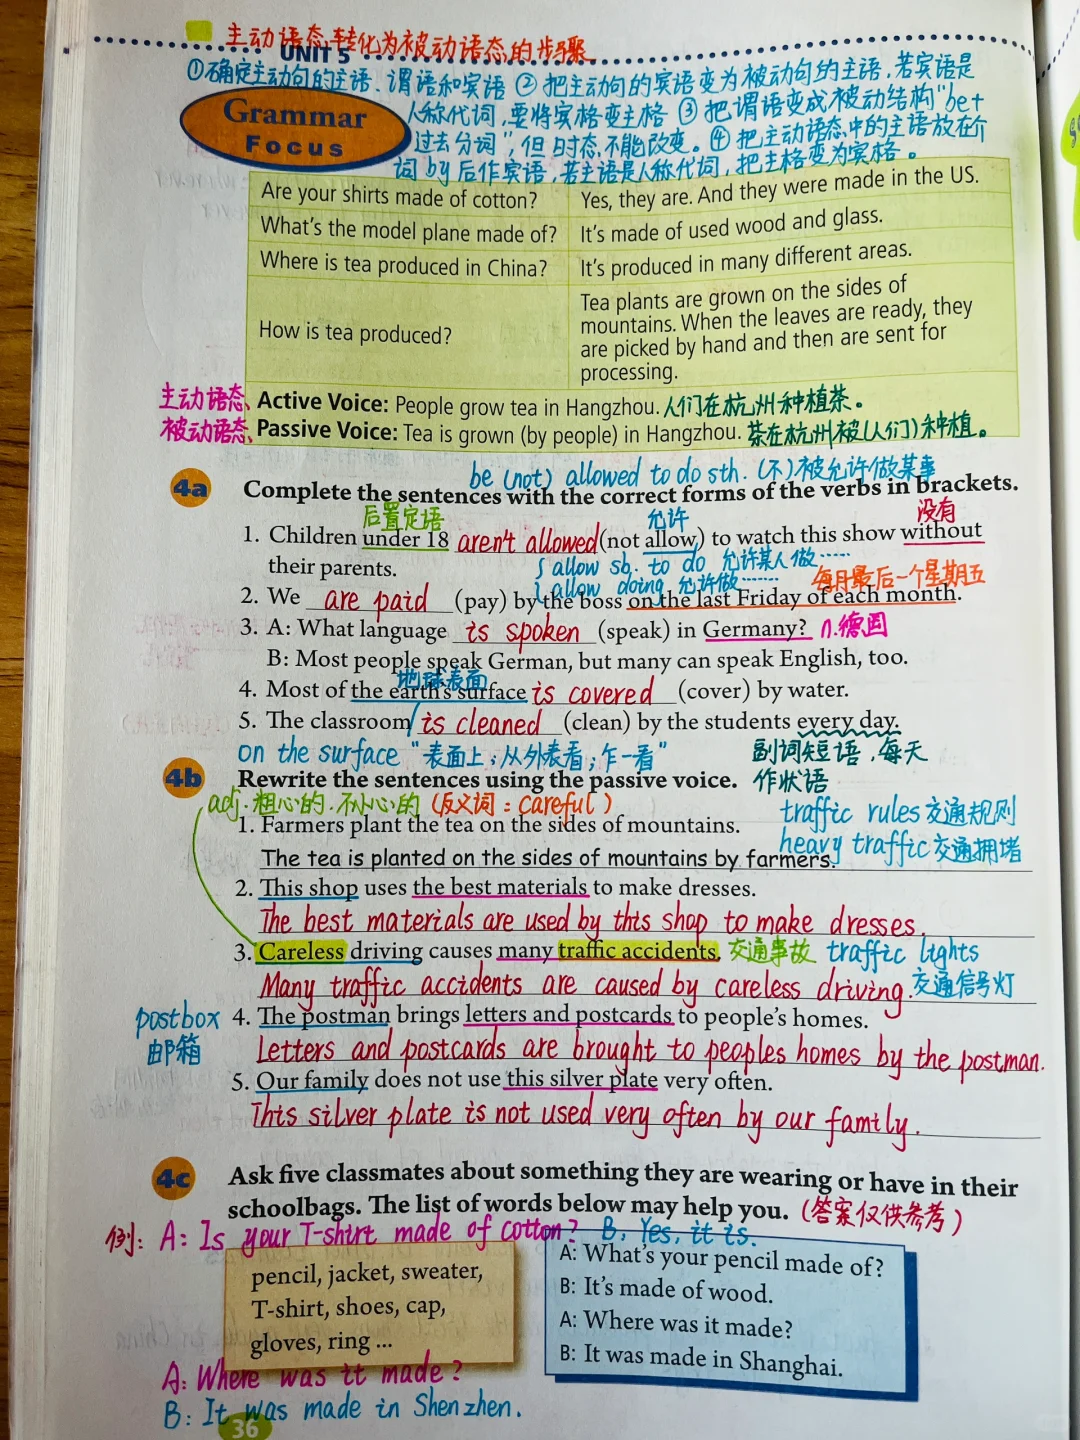 主动语态转化为被动语态的步骤
UNIT 5
①确定主动句的主语、谓语和宾语 ②把主动句的宾语变为被动句的主语,若宾语是
人称代词,要将宾格变主格 ③把谓语变成被动结构"be+
过去分词",但时态不能改变。④把主动语态中的主语放在介
词by后作宾语,若主语是人称代词,把主格变为宾格。
Grammar
Focus
Are your shirts made of cotton? Yes, they are. And they were made in the US.
What's the model plane made of? It's made of used wood and glass.
Where is tea produced in China? It's produced in many different areas.
How is tea produced?
Tea plants are grown on the sides of
mountains. When the leaves are ready, they
are picked by hand and then are sent for
processing.
主动语态、Active Voice: People grow tea in Hangzhou. 人们在杭州种植茶。
被动语态、Passive Voice: Tea is grown (by people) in Hangzhou. 茶在杭州被(人们)种植。
be (not) allowed to do sth. (不)被允许做某事
4a Complete the sentences with the correct forms of the verbs in brackets.
后置定语 允许 没有
1. Children under 18 aren't allowed (not allow) to watch this show without
their parents.
allow sb. to do 允许某人做……
allow doing 允许做…… 每月最后一个星期五
2. We are paid (pay) by the boss on the last Friday of each month.
3. A: What language is spoken (speak) in Germany? n.德国
B: Most people speak German, but many can speak English, too.
地球表面
4. Most of the earth's surface is covered (cover) by water.
5. The classroom is cleaned (clean) by the students every day.
on the surface "表面上;从外表看;乍一看" 副词短语,每天
作状语
4b Rewrite the sentences using the passive voice.
adj.粗心的.不小心的 (反义词:careful)
traffic rules 交通规则
1. Farmers plant the tea on the sides of mountains.
heavy traffic 交通拥堵
The tea is planted on the sides of mountains by farmers.
2. This shop uses the best materials to make dresses.
The best materials are used by this shop to make dresses.
3. Careless driving causes many traffic accidents. 交通事故 traffic lights
交通信号灯
Many traffic accidents are caused by careless driving.
postbox
邮箱
4. The postman brings letters and postcards to people's homes.
Letters and postcards are brought to peoples homes by the postman.
5. Our family does not use this silver plate very often.
This silver plate is not used very often by our family.
4c Ask five classmates about something they are wearing or have in their
schoolbags. The list of words below may help you. (答案仅供参考)
例: A: Is your T-shirt made of cotton? B: Yes, it is.
pencil, jacket, sweater,
T-shirt, shoes, cap,
gloves, ring ...
A: What's your pencil made of?
B: It's made of wood.
A: Where was it made?
B: It was made in Shanghai.
A: Where was it made?
B: It was made in Shenzhen.
36